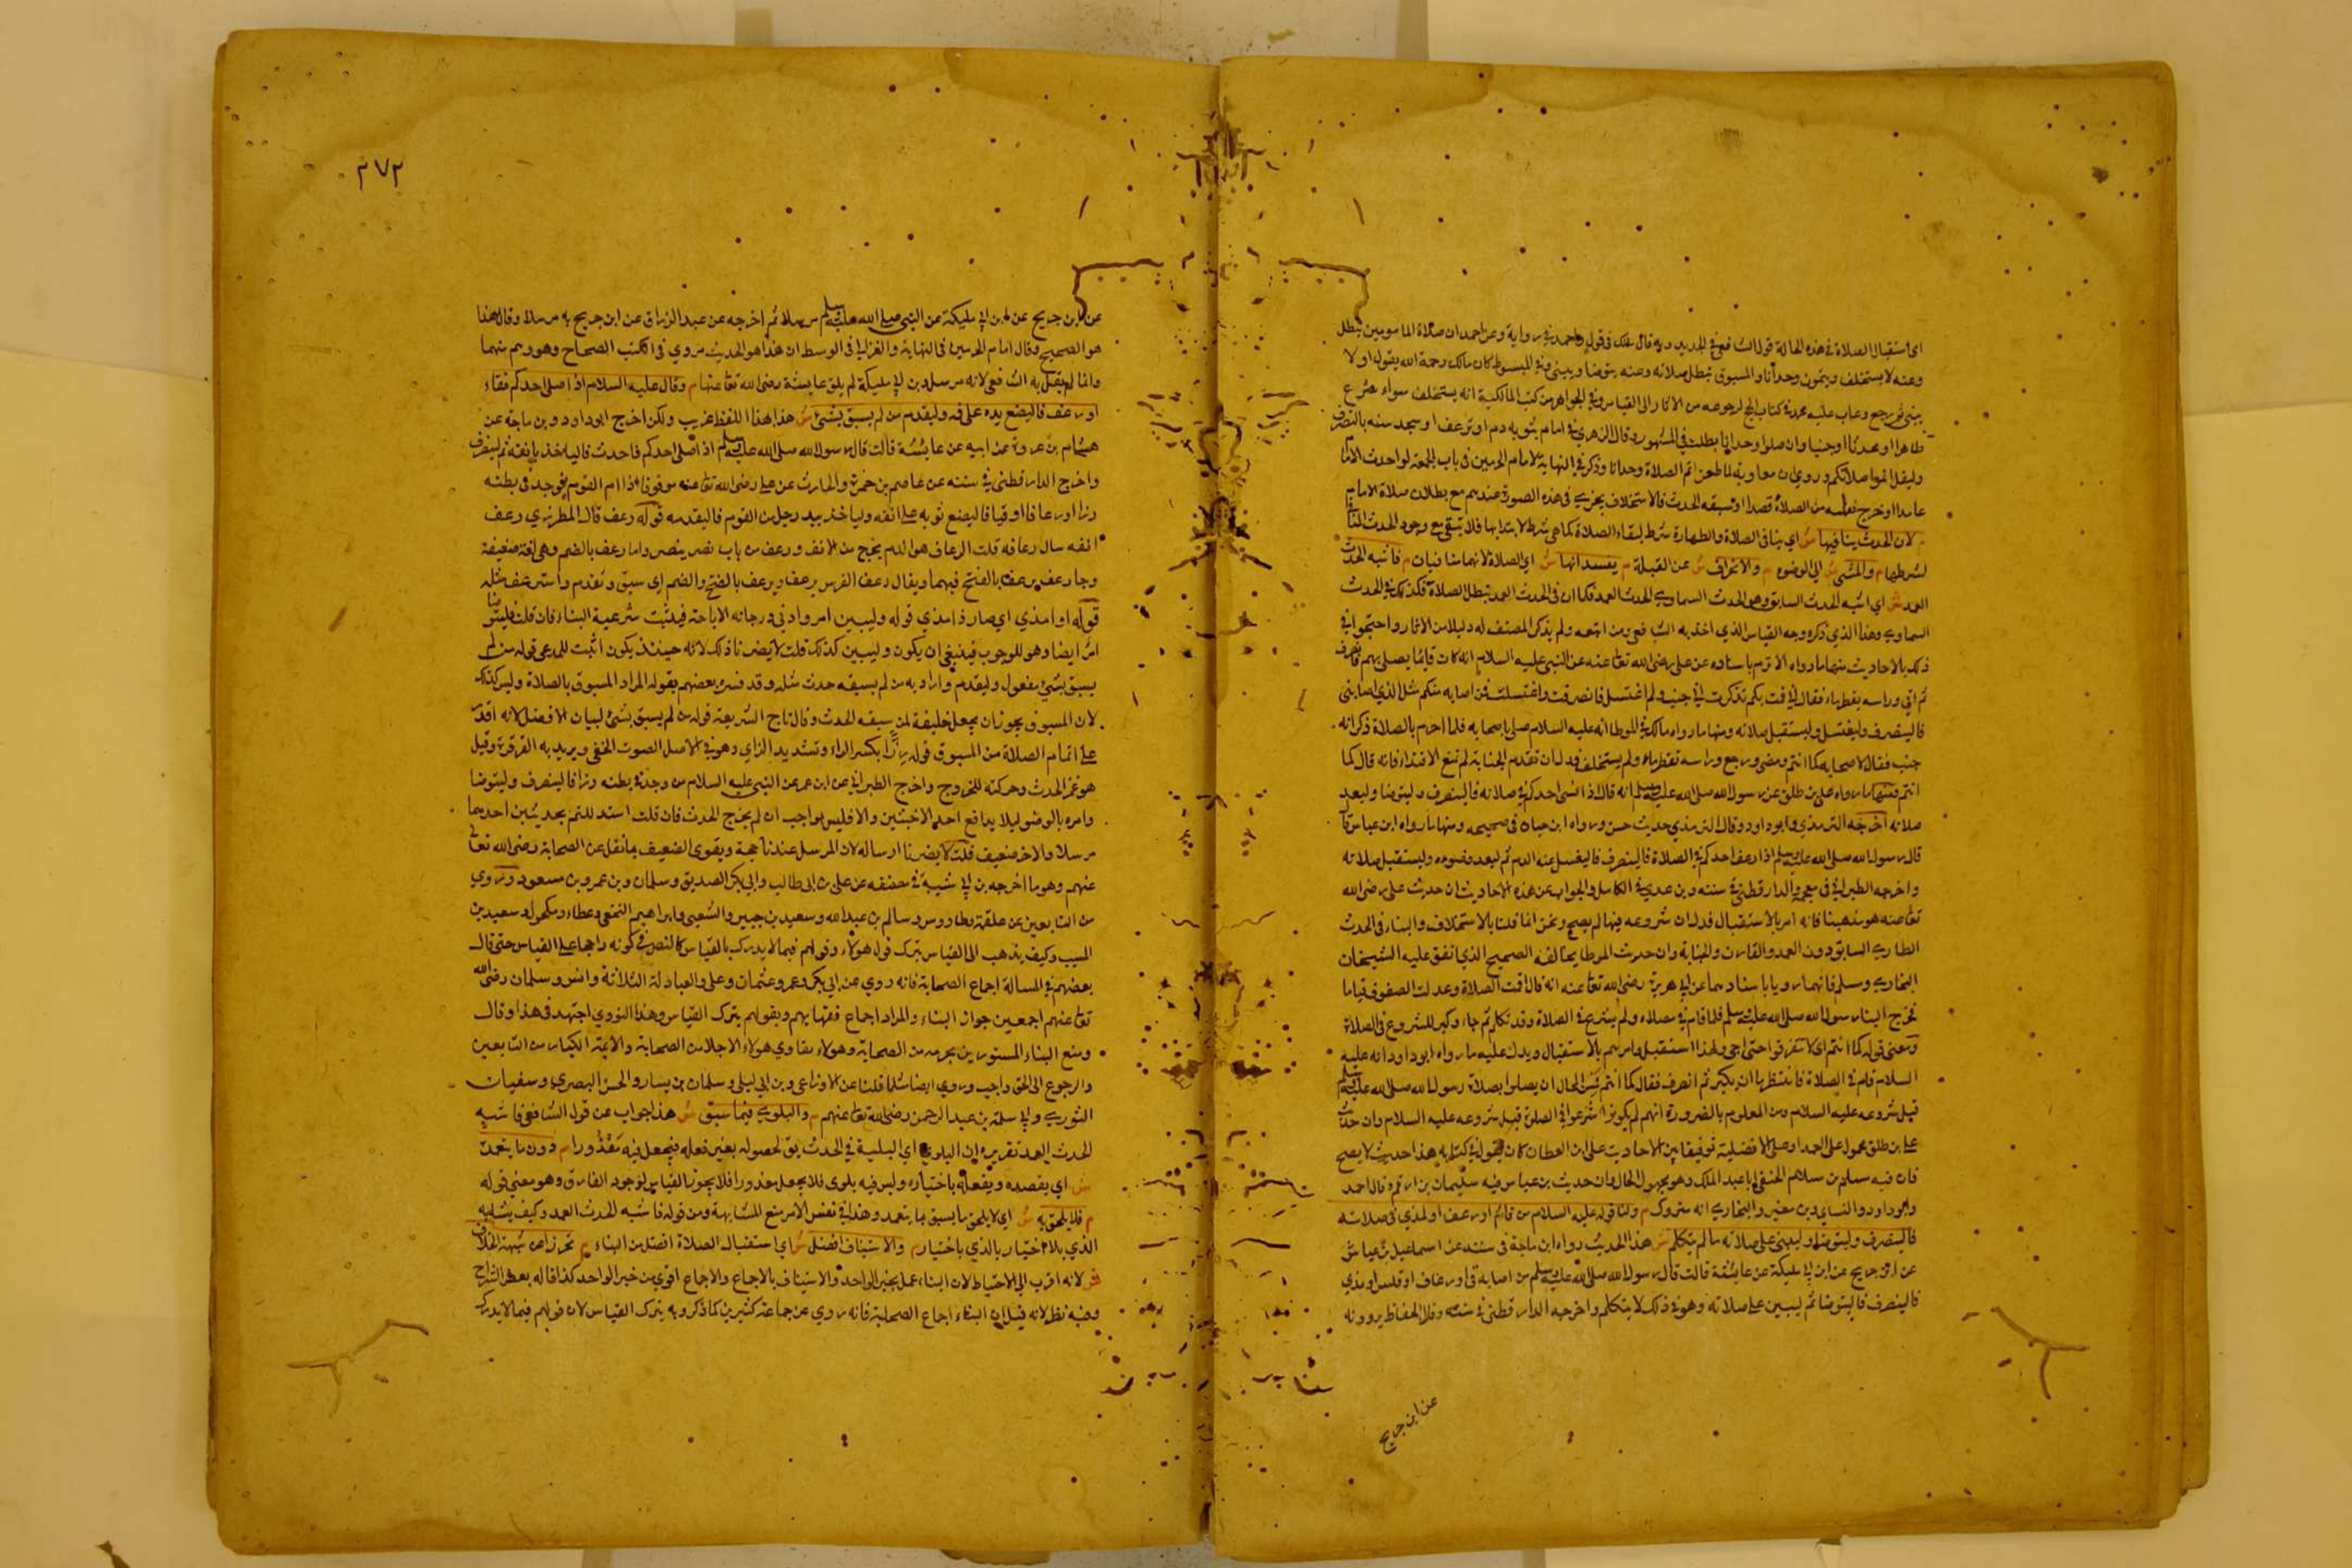 اي استقبال الصلاة في هذه الحالة قول الشافعي في الجديد وبه قال مالك في قول واحمد في رواية وعن احمد ان صلاة المامومين تبطل
وعنه لا يستخلف ويتمون وحدانا والمسبوق تبطل صلاته وعنه يتوضا ويبني وفي المبسوط كان مالك رحمة الله يقول اولا
يبني ثم رجع وعاب عليه محمد في كتاب الحج لرجوعه من الاثار الى القياس وفي الجواهر من كتب المالكية انه يستخلف سواء
طاهرا او محدثا او جنبا وان صلوا وحدانا بطلت في المشهور وقال الزهري في امام ينوبه دم او رعف او يجد
وليقل اتموا صلاتكم وروي ان معاوية لما طعن اتم الصلاة وحدانا وذكر في النهاية لامام الحرمين في باب الجمعة لو احدث الامام
عامدا او خرج نفسه من الصلاة قصدا او سبقه الحدث فالاستخلاف يجري في هذه الصورة عندهم مع بطلان صلاة الامام
م لان الحدث ينافيها ش اي ينافي الصلاة والطهارة شرط لبقاء الصلاة كما هي شرط لابتدائها فلا تبقى مع وجود الحدث
لشرطها م والمشي ش الى الوضوء م والانحراف ش عن القبلة م يفسدانها ش اي الصلاة لانهما منافيان م فاشبه الحدث
العمد ش اي اشبه الحدث السابق وهو الحدث السماوي الحدث العمد فكما ان في الحدث العمد تبطل الصلاة فكذلك في الحدث
السماوي وهذا الذي ذكره وجه القياس الذي اخذ به الشافعي ومن اتبعه ولم يذكر المصنف له دليلا من الاثار واحتجوا في
ذلك بالاحاديث منها ما رواه الاثرم باسناده عن علي رضي الله تعا عنه عن النبي عليه السلام انه كان قائما يصلي بهم فانصرف
ثم اتي وراسه يقطر ماء فقال اني قمت بكم ثم ذكرت اني جنب ولم اغتسل فانصرفت واغتسلت فمن اصابه منكم مثل الذي اصابني
فالينصرف وليغتسل وليستقبل صلاته ومنها ما رواه مالك في الموطا انه عليه السلام صلى باصحابه فلما احرم بالصلاة ذكر انه
جنب فقال لاصحابه كما انتم ومضى ورجع وراسه تقطر ماء ولم يستخلف فدل ان تقدم الجنابة لم تمنع الاقتداء فانه قال كما
انتم ومنها ما رواه علي بن طلق عن رسول الله صلى الله عليه وسلم انه قال اذا فسى احدكم في صلاته فالينصرف وليتوضا وليعد
صلاته اخرجه الترمذي وابو داود وقال الترمذي حديث حسن ورواه ابن حبان في صحيحه ومنها ما رواه ابن عباس قال
قال رسول الله صلى الله عليه وسلم اذا رعف احدكم في الصلاة فالينصرف فاليغسل عنه الدم ثم ليعد وضوءه وليستقبل صلاته
واخرجه الطبراني في معجمه والدارقطني في سننه وبن عدي في الكامل والجواب عن هذه الاحاديث ان حديث علي رضي الله
تعا عنه هو مذهبنا فانه امر بالاستقبال فدل ان شروعه فيها لم يصح ونحن انما قلنا بالاستخلاف والبناء في الحدث
الطاري السابق دون العمد والمقارن والجنابة وان حديث الموطا يخالفه الصحيح الذي اتفق عليه الشيخان
البخاري ومسلم فانهما رويا باسنادهما عن ابي هريرة رضي الله تعا عنه انه قال اقيمت الصلاة وعدلت الصفوف قياما
فخرج الينا رسول الله صلى الله عليه وسلم فلما قام في مصلاه ولم يشرع في الصلاة وقد
ومعنى قوله كما انتم اي لا تتفرقوا حتى اجي ولهذا استقبل وامرهم بالاستقبال ويدل عليه ما رواه ابو داود انه عليه
السلام قام في الصلاة فانتظرنا ان يكبر ثم انصرف فقال كما انتم
قبل شروعه عليه السلام ومن المعلوم بالضرورة انهم لم يكونوا شرعوا في الصلوة قبل شروعه عليه السلام وان حديث
علي بن طلق محمول على العمد او على الافضلية توفيقا بين الاحاديث على ابن القطان كان يقول في كتابه هذا حديث لا يصح
فان فيه مسلم بن سلام الحنفي ابا عبد الملك وهو مجهول الحال وان حديث بن عباس فيه سليمان بن ارقم وقال احمد
وابو داود والنساي وبن معين والبخاري انه متروك م ولنا قوله عليه السلام من قاء او رعف او امذى في صلاته
فالينصرف وليتوضا وليبني على صلاته ما لم يتكلم ش هذا الحديث رواه ابن ماجة في سننه عن اسماعيل بن عياش
عن ابن جريج عن ابن ابي مليكة عن عايشة قالت قال رسول الله صلى الله عليه وسلم من اصابه قي او رعاف او قلس او مذي
فالينصرف فاليتوضا ثم ليبين على صلاته وهو في ذلك لا يتكلم واخرجه الدارقطني في سننه وقال الحفاظ يروونه
عن ابن جريج
٢٧٢
عن ابن جريج عن ابن ابي مليكة عن النبي صلى الله عليه وسلم مرسلا ثم اخرجه عن عبد الرزاق عن ابن جريج به مرسلا وقال هذا
هو الصحيح وقال امام الحرمين في النهاية والغزالي في الوسيط ان هذا هو الحديث مروي في الكتب الصحاح وهو وهم منهما
وانما لم يقبل به الشافعي لانه مرسل بن ابي مليكة لم يلق عايشة رضي الله تعا عنها م وقال عليه السلام اذا صلى احدكم فقاء
او رعف فاليضع يده على فمه وليقدم من لم يسبق بشئ ش هذا بهذا اللفظ غريب ولكن اخرج ابو داود وبن ماجة عن
هشام بن عروة عن ابيه عن عايشة قالت قال رسول الله صلى الله عليه وسلم اذا صلى احدكم فاحدث فالياخذ بانفه ثم لينصرف
واخرج الدارقطني في سننه عن عاصم بن ضمرة والحارث عن علي رضي الله تعا عنه موقوفا اذا ام القوم فوجد في بطنه
رزا او رعافا او قيا فاليضع ثوبه على انفه ولياخذ بيد رجل من القوم فاليقدمه قوله رعف قال المطرزي رعف
انفه سال رعافه قلت الرعاف هو الدم يخرج من الانف ورعف من باب نصر ينصر واما رعف بالضم وهي لغة ضعيفة
وجا رعف يرعف بالفتح فيهما ويقال رعف الفرس يرعف ويرعف بالفتح والضم اي سبق وتقدم واسترعف مثله
قوله او امذى اي صار ذا مذي قوله وليبين امر وادنى درجاته الاباحة فيثبت شرعية البناء فان قلت فليتوضا
امر ايضا وهو للوجوب فينبغي ان يكون وليبين كذلك قلت لا يضرنا ذلك لانه حينئذ يكون اثبت للمدعى قوله من لم
يسبق بشئ مفعول وليقدم واراد به من لم يسبقه حدث مثله وقد فسره بعضهم بقوله المراد المسبوق بالصلاة وليس كذلك
لان المسبوق يجوز ان يجعل خليفة لمن سبقه الحدث وقال تاج الشريعة قوله من لم يسبق بشئ لبيان الافضل لانه اقدر
على اتمام الصلاة من المسبوق قوله رزا بكسر الراء وتشديد الزاي وهو في الاصل الصوت الخفي ويريد به القرقرة وقيل
هو غمز الحدث وحركته للخروج واخرج الطبراني عن ابن عمر عن النبي عليه السلام من وجد في بطنه رزا فالينصرف وليتوضا
وامره بالوضو ليلا يدافع احد الاخبثين والا فليس بواجب ان لم يخرج الحدث فان قلت استدللتم بحديثين احدهما
مرسلا والاخر ضعيف قلت لا يضرنا ارساله لان المرسل عندنا حجة ويقوى الضعيف بما نقل عن الصحابة رضي الله تعا
عنهم وهو ما اخرجه بن ابي شيبة في مصنفه عن علي بن ابي طالب وابي بكر الصديق وسلمان وبن عمر وبن مسعود وروي
من التابعين عن علقمة وطاووس وسالم بن عبد الله وسعيد بن جبير والشعبي وابراهيم النخعي وعطاء ومكحول وسعيد بن
المسيب وكيف يذهب الى القياس بترك قول هولاء وقولهم فيما لا يدرك بالقياس كالنص في كونه راجحا على القياس حتى قال
بعضهم في المسالة اجماع الصحابة فانه روي عن ابي بكر وعمر وعثمان وعلي والعبادلة الثلاثة وانس وسلمان رضي الله
تعا عنهم اجمعين جواز البناء والمراد اجماع فقهايهم وبقولهم يترك القياس وهذا النووي اجتهد في هذا وقال
ومنع البناء المسور بن مخرمة من الصحابة وهولاء يقاوي هولاء الاجلا من الصحابة والايمة الكبار من التابعين
والرجوع الى الحق واجب وروي ايضا مثل ما قلنا عن الاوزاعي وبن ابي ليلى وسلمان بن يسار والحسن البصري وسفيان
الثوري وابي سلمة بن عبد الرحمن رضي الله تعا عنهم م والبلوى فيما سبق ش هذا جواب عن قول الشافعي فاشبه
الحدث العمد تقريره ان البلوى اي البلية في الحدث يق لحصوله بغير فعله فيجعل فيه معذورا م دون ما يتعمد
ش اي يقصده ويفعله باختياره وليس فيه بلوى فلا يجعل معذورا فلا يجوز القياس لوجود الفارق وهو معنى قوله
م فلا يلحق به ش اي لا يلحق ما يسبق بما يتعمد وهذا في نفس الامر منع المشابهة ومن قوله فاشبه الحدث العمد وكيف يشابه
الذي بلا اختيار بالذي باختيار م والاستيناف افضل ش اي استقبال الصلاة افضل من البناء م تحرزا عن شبهة الخلاف
ش لانه اقرب الى الاحتياط لان البناء عمل بخبر الواحد والاستيناف بالاجماع والاجماع اقوى من خبر الواحد كذا قاله بعض الشراح
وفيه نظر لانه قيل ان البناء اجماع الصحابة فانه روي عن جماعة كثيرين كما ذكر وبه يترك القياس لان قولهم فيما لا يدرك